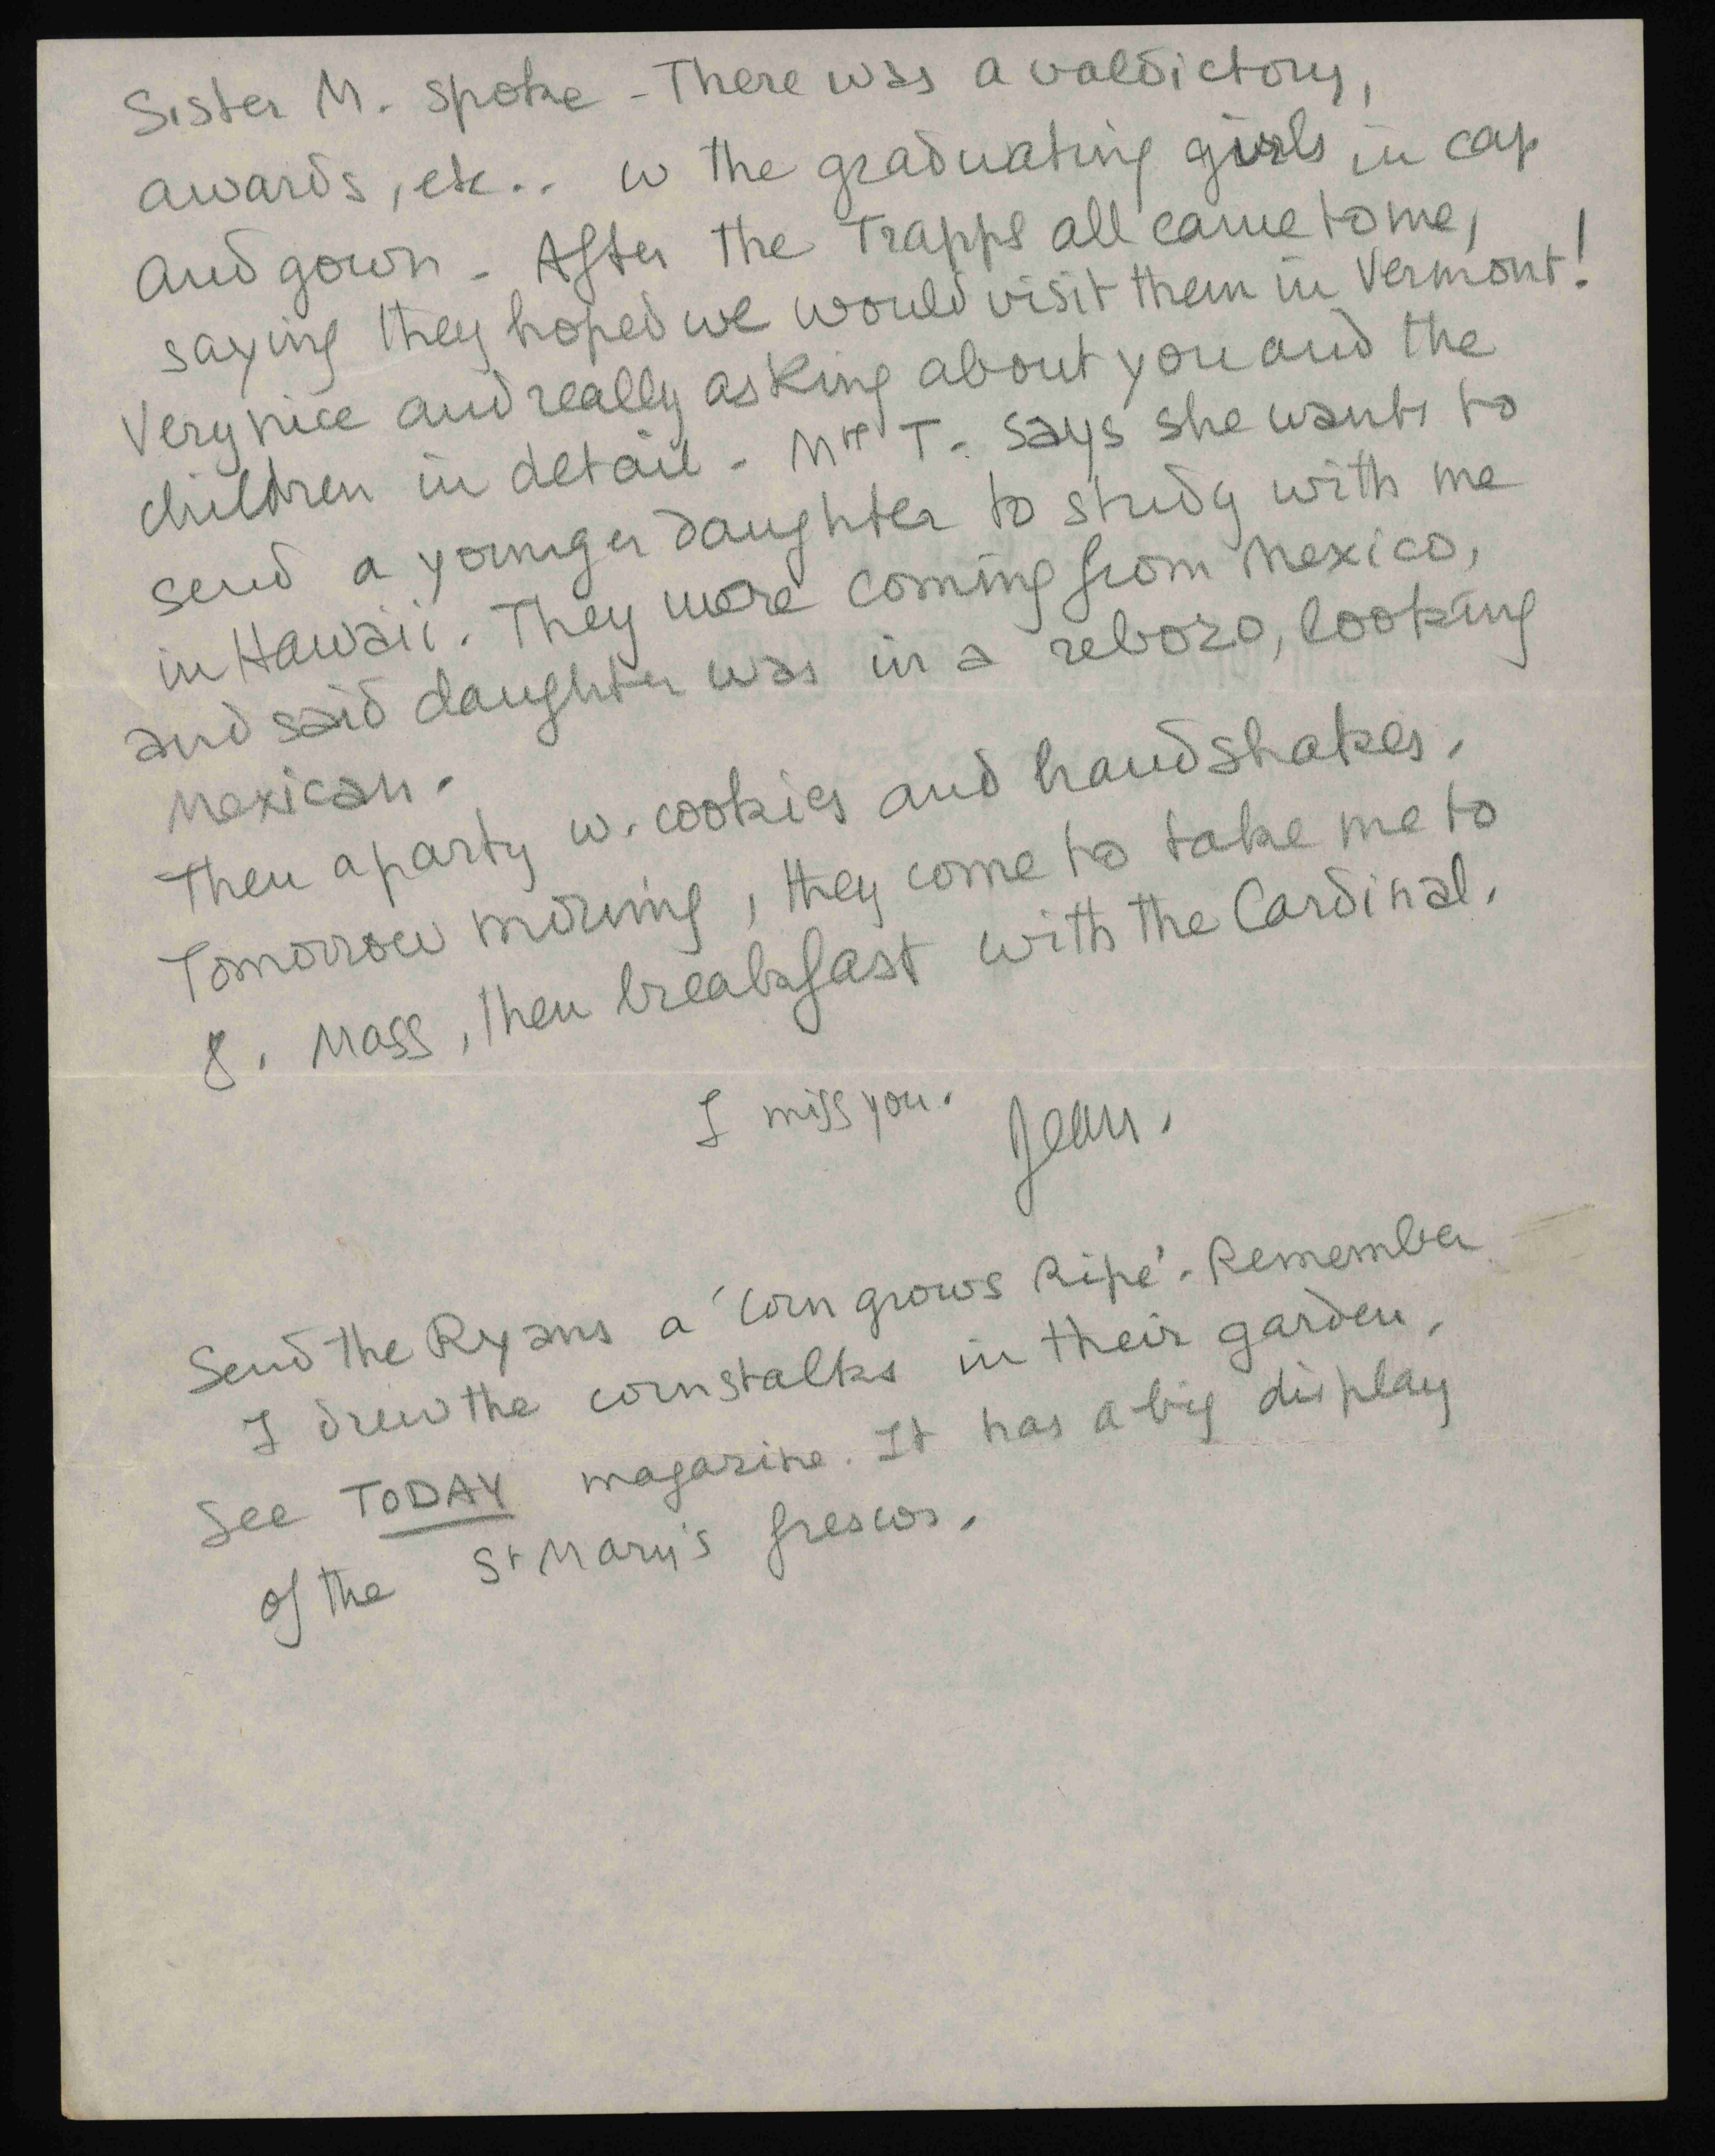 Sister M. spoke - There was a valdictory,
awards, etc.. w the graduating girls in cap
and gown - After the Trapps all came to me,
saying they hoped we would visit them in Vermont!
Very nice and really asking about you and the
children in detail - Mrs T. says she wants to
send a younger daughter to study with me
in Hawaii. They were coming from Mexico,
and said daughter was in a rebozo, looking
Mexican.
Then a party w. cookies and handshakes.
Tomorrow morning, they come to take me to
8. Mass, then breakfast with the Cardinal.
I miss you. Jean.
Send the Ryans a 'Corn grows Ripe'. Remember
I drew the cornstalks in their garden.
See TODAY magazine. It has a big display
of the St Mary's frescos.